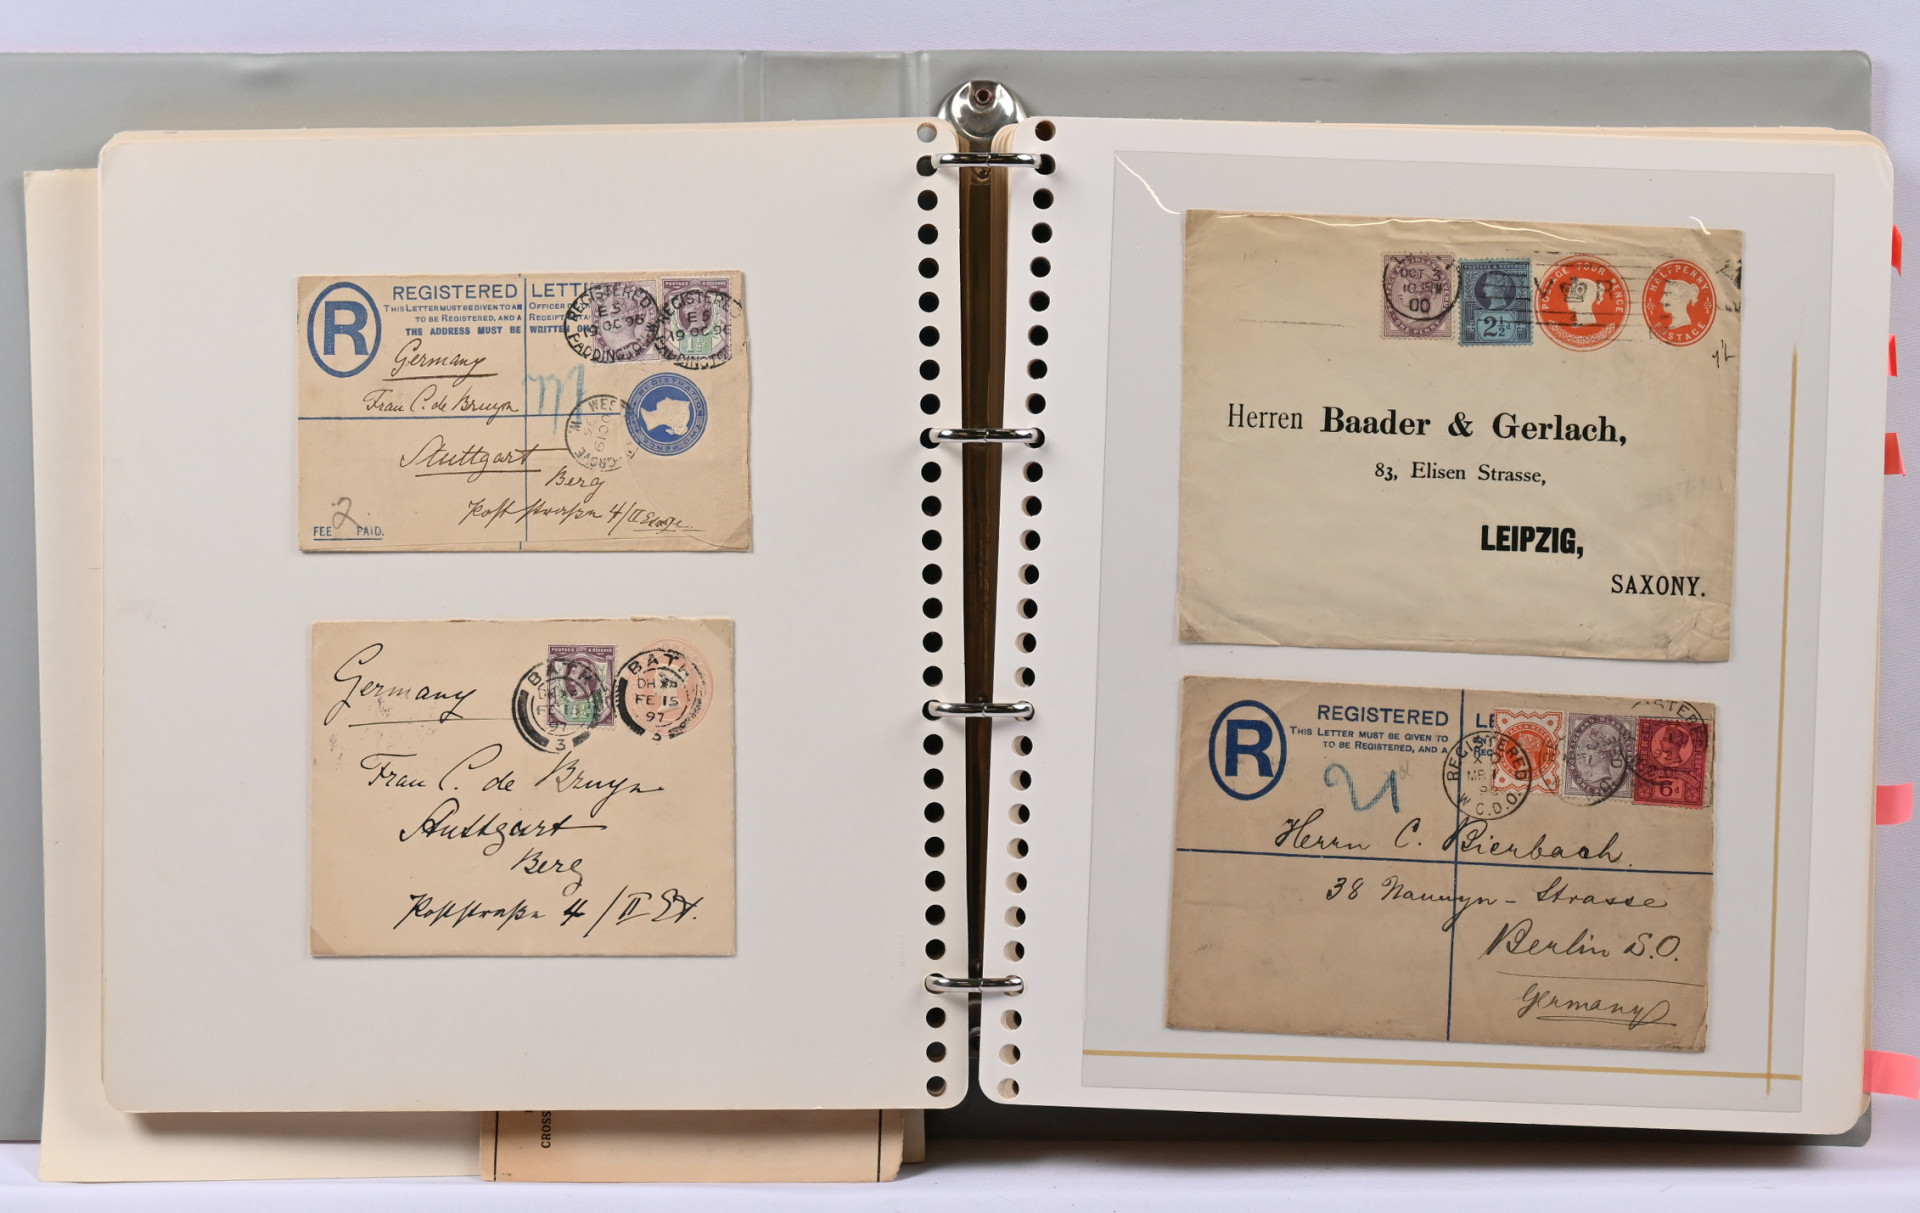 REGISTERED LETT
THIS LETTER MUST BE GIVEN TO AN OFFICER
TO BE REGISTERED, AND A RECEIPT
THE ADDRESS MUST BE WRITTEN ON
R
REGISTERED
ES
19 OC 96
PADDINGTON
REGISTERED
ES
19 OC 96
PADDINGTO
1½
Germany
Frau C. de Bruyn
Stuttgart
Berg
Poststraße 4/II Etage
WES
GROVE
2
FEE PAID.
POSTAGE & REVENUE
BATH
FE 15
97
3
BATH
FE 15
97
3
Germany
Frau C. de Bruyn
Stuttgart
Berg
Poststraße 4/II Et.
CROSS
OCT 3
00
ONE PENNY
POSTAGE & REVENUE
2½d
POSTAGE FOUR PENCE
HALFPENNY
POSTAGE
Herren Baader & Gerlach,
83, Elisen Strasse,
LEIPZIG,
SAXONY.
REGISTERED LE
THIS LETTER MUST BE GIVEN TO
TO BE REGISTERED, AND A REC
R
REGISTERED
W.C.D.O.
6d
21
Herrn C. Bierbach.
38 Naunyn - Strasse
Berlin S.O.
Germany